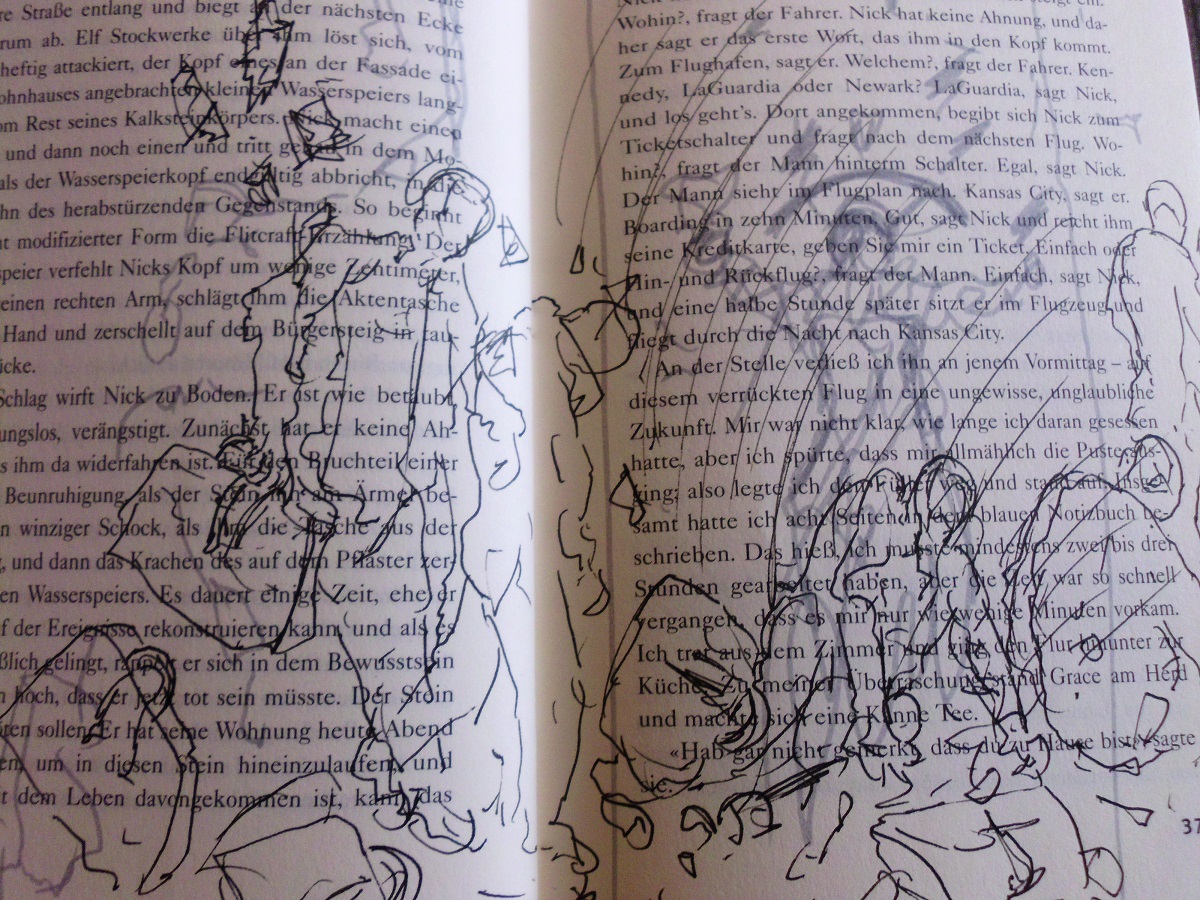 re Straße entlang und biegt an der nächsten Ecke
rum ab. Elf Stockwerke über ihm löst sich, vom
heftig attackiert, der Kopf eines an der Fassade ei-
ohnhauses angebrachten kleinen Wasserspeiers lang-
om Rest seines Kalksteinkörpers. Nick macht einen
und dann noch einen und tritt genau in dem Mo-
als der Wasserspeierkopf endgültig abbricht, in die
hn des herabstürzenden Gegenstands. So beginnt
modifizierter Form die Flitcraft-Erzählung. Der
speier verfehlt Nicks Kopf um wenige Zentimeter,
einen rechten Arm, schlägt ihm die Aktentasche
Hand und zerschellt auf dem Bürgersteig in tau-
ücke.
Schlag wirft Nick zu Boden. Er ist wie betäubt,
ungslos, verängstigt. Zunächst hat er keine Ah-
s ihm da widerfahren ist. Für den Bruchteil einer
Beunruhigung, als der Stein ihn am Ärmel be-
n winziger Schock, als ihm die Tasche aus der
, und dann das Krachen des auf dem Pflaster zer-
en Wasserspeiers. Es dauert einige Zeit, ehe er
f der Ereignisse rekonstruieren kann, und als es
ßlich gelingt, rappelt er sich in dem Bewusstsein
n hoch, dass er jetzt tot sein müsste. Der Stein
öten sollen. Er hat seine Wohnung heute Abend
en, um in diesen Stein hineinzulaufen, und
t dem Leben davongekommen ist, kann das
Wohin?, fragt der Fahrer. Nick hat keine Ahnung, und da-
her sagt er das erste Wort, das ihm in den Kopf kommt.
Zum Flughafen, sagt er. Welchem?, fragt der Fahrer. Ken-
nedy, LaGuardia oder Newark? LaGuardia, sagt Nick,
und los geht's. Dort angekommen, begibt sich Nick zum
Ticketschalter und fragt nach dem nächsten Flug. Wo-
hin?, fragt der Mann hinterm Schalter. Egal, sagt Nick.
Der Mann sieht im Flugplan nach. Kansas City, sagt er.
Boarding in zehn Minuten. Gut, sagt Nick und reicht ihm
seine Kreditkarte, geben Sie mir ein Ticket. Einfach oder
Hin- und Rückflug?, fragt der Mann. Einfach, sagt Nick,
und eine halbe Stunde später sitzt er im Flugzeug und
fliegt durch die Nacht nach Kansas City.
An der Stelle verließ ich ihn an jenem Vormittag – auf
diesem verrückten Flug in eine ungewisse, unglaubliche
Zukunft. Mir war nicht klar, wie lange ich daran gesessen
hatte, aber ich spürte, dass mir allmählich die Puste aus-
ging; also legte ich den Füller weg und stand auf. Insge-
samt hatte ich acht Seiten in dem blauen Notizbuch be-
schrieben. Das hieß, ich musste mindestens zwei bis drei
Stunden gearbeitet haben, aber die Zeit war so schnell
vergangen, dass es mir nur wie wenige Minuten vorkam.
Ich trat aus dem Zimmer und ging den Flur hinunter zur
Küche. Zu meiner Überraschung stand Grace am Herd
und machte sich eine Kanne Tee.
«Hab gar nicht gemerkt, dass du zu Hause bist», sagte
sie.
37